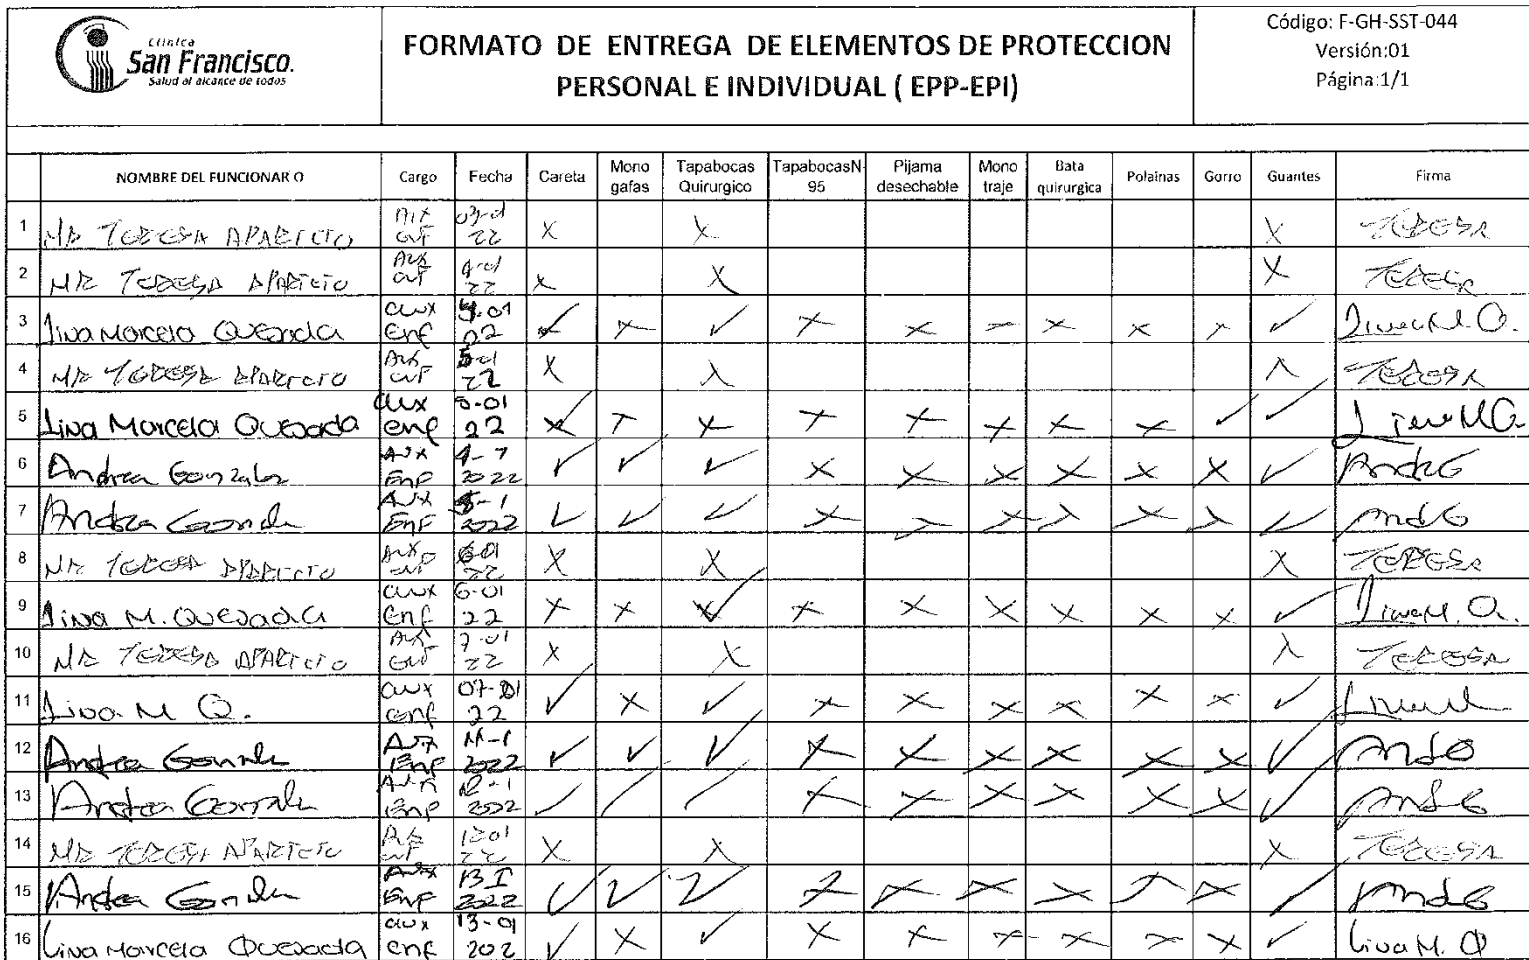 Clínica
San Francisco.
Salud al alcance de todos
FORMATO DE ENTREGA DE ELEMENTOS DE PROTECCION
PERSONAL E INDIVIDUAL ( EPP-EPI)
Código: F-GH-SST-044
Versión:01
Página:1/1
NOMBRE DEL FUNCIONAR O Cargo Fecha Careta Mono gafas Tapabocas Quirurgico TapabocasN-95 Pijama desechable Mono traje Bata quirurgica Polainas Gorro Guantes Firma
1 Ma TERESA APARICIO Aux enf 03-01 22 X X X TERESA
2 Ma TERESA APARICIO Aux enf 4-01 22 X X X TERESA
3 Lina Marcela Quesada aux Enf 01 22 ✓ X ✓ X X X X X X ✓ Lina M. Q.
4 Ma TERESA APARICIO Aux enf 5-01 22 X X X TERESA
5 Lina Marcela Quesada aux enf 5-01 22 X X X X X X X ✓ ✓ Lina M Q.
6 Andrea Gonzalez Aux Enf 2022 ✓ ✓ ✓ X X X X X X ✓ Andr G
7 Andrea Gonzale Aux Enf 2022 ✓ ✓ ✓ X X X X X X ✓ And G
8 Ma TERESA APARICIO Aux enf 6-01 22 X X X TERESA
9 Lina M. Quesada aux Enf 6-01 22 X X ✓ X X X X X X ✓ Lina M. Q.
10 Ma TERESA APARICIO Aux enf 7-01 22 X X X TERESA
11 Lina M Q. aux enf 07-01 22 ✓ X ✓ X X X X X X ✓ Lina M
12 Andrea Gonzale Aux Enf 11-1 2022 ✓ ✓ ✓ X X X X X X ✓ And G
13 Andrea Gonzale Aux Enf 12-1 2022 ✓ ✓ ✓ X X X X X X ✓ And G
14 Ma TERESA APARICIO Aux enf 12-01 22 X X X TERESA
15 Andrea Gonzale Aux Enf 13 I 2022 ✓ ✓ ✓ X X X X X X ✓ And G
16 Lina Marcela Quesada aux enf 13-01 202 ✓ X ✓ X X X X X X ✓ Lina M. Q